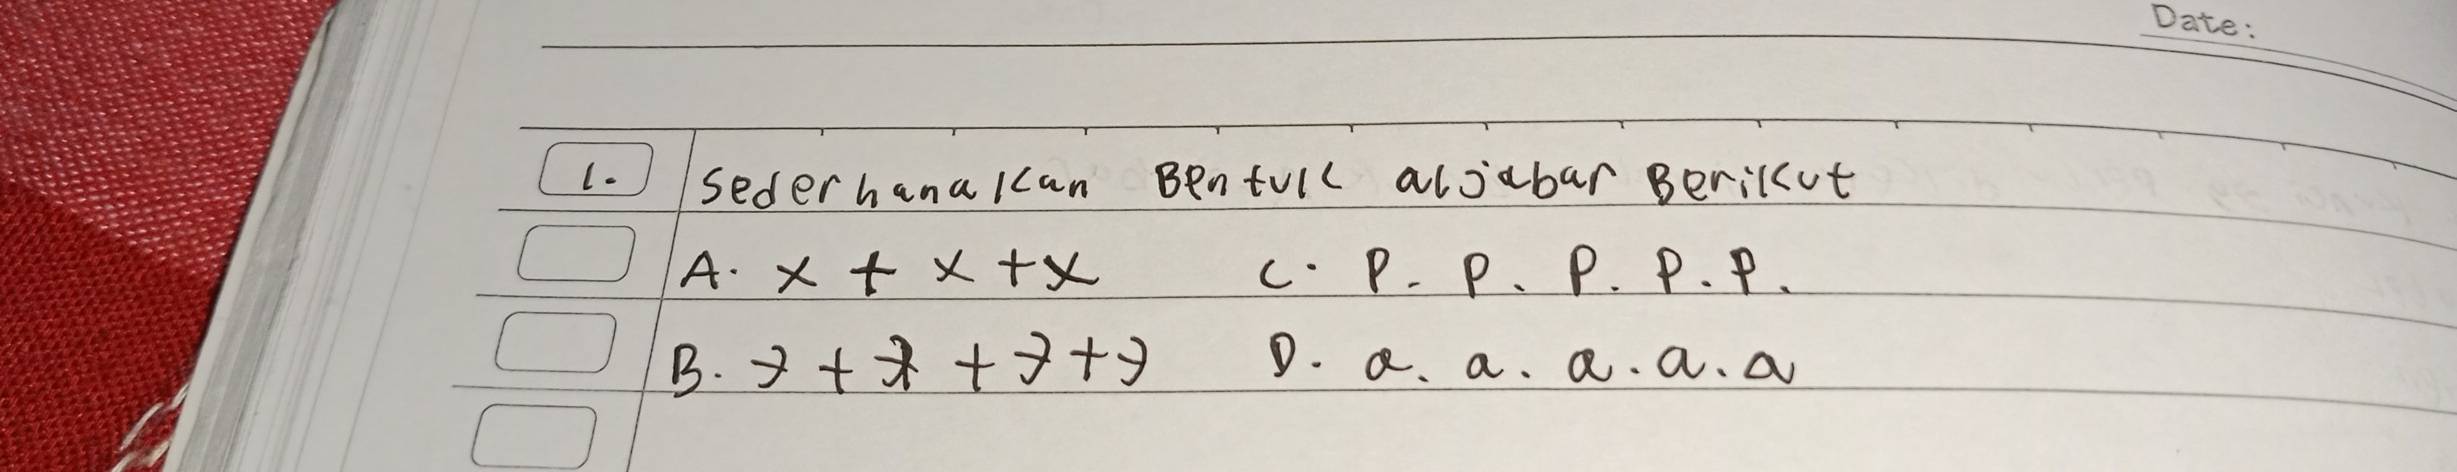 Date:
1. Sederhanakan Bentuk aljabar Berikut
A. x + x + x C. P. P. P. P. P.
B. 7 + 7 + 7 + 7 D. a. a. a. a. a